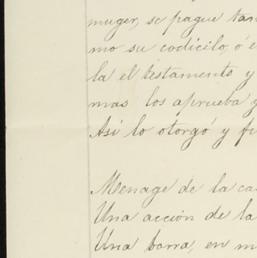 muger, se pague tan
mo su codicilo, ó e
la el testamento y
mas los aprueba y
Así lo otorgó y fi
Menage de la ca
Una acción de la
Una barra, en m